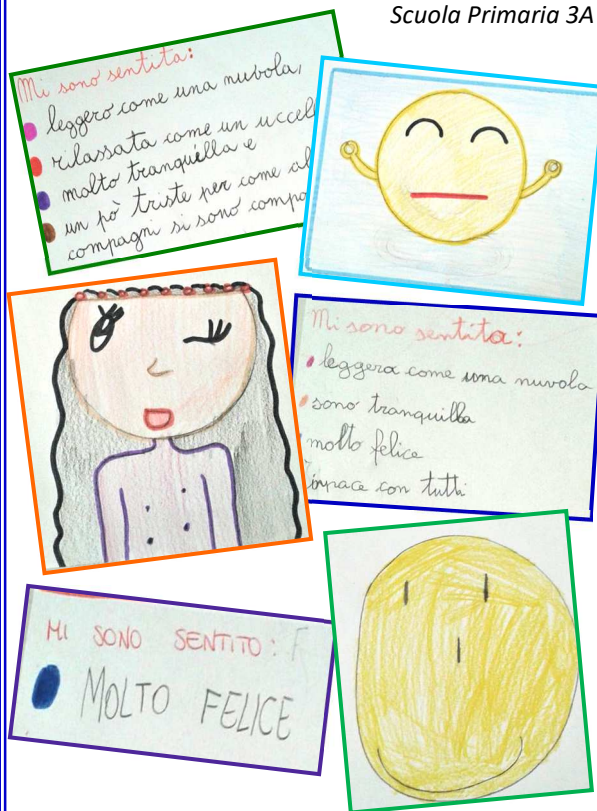 Scuola Primaria 3A
Mi sono sentita:
leggero come una nubola,
rilassata come un uccel
molto tranquilla e
un pò triste per come al
compagni si sono compo
Mi sono sentita:
leggera come una nuvola
sono tranquilla
molto felice
in pace con tutti
MI SONO SENTITO: F
MOLTO FELICE